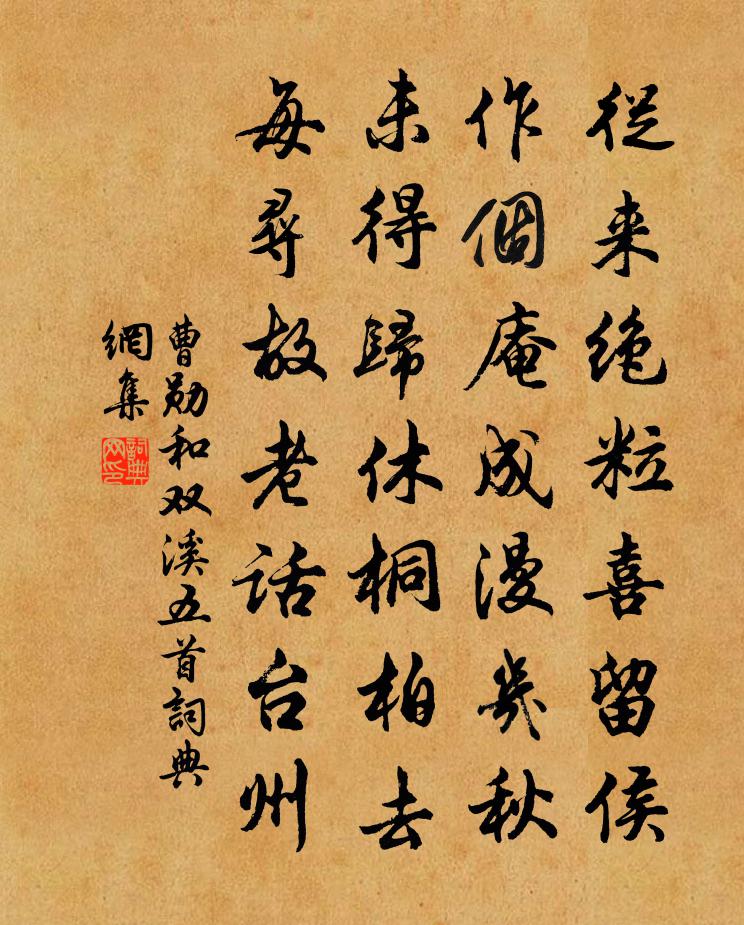 從来绝粒喜留侯
作個庵成漫幾秋
未得歸休桐柏去
每尋故老話台州
曹勛和双溪五首詞典
網集
詞典
网印